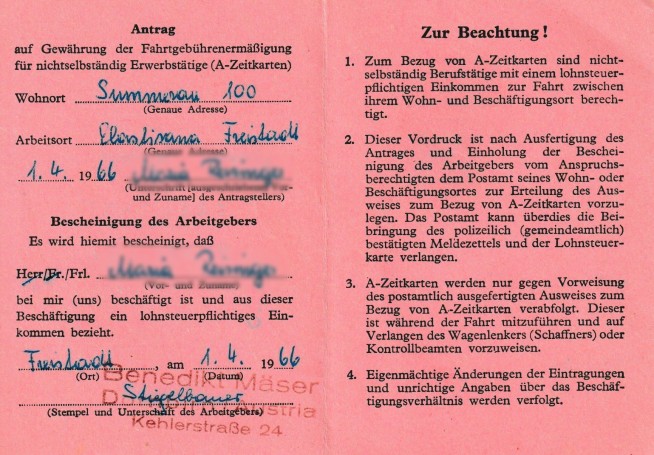 Antrag
auf Gewährung der Fahrtgebührenermäßigung
für nichtselbständig Erwerbstätige (A-Zeitkarten)
Wohnort Summerau 100
(Genaue Adresse)
Arbeitsort Elastisana Freistadt
(Genaue Adresse)
1. 4. 1966
(Unterschrift [ausgeschriebener Vor-
und Zuname] des Antragstellers)
Bescheinigung des Arbeitgebers
Es wird hiemit bescheinigt, daß
Herr/Fr./Frl. Maria
(Vor- und Zuname)
bei mir (uns) beschäftigt ist und aus dieser
Beschäftigung ein lohnsteuerpflichtiges Ein-
kommen bezieht.
Freistadt, am 1. 4. 1966
(Ort) (Datum)
Benedikt Mäser
Stiegelbauer
(Stempel und Unterschrift des Arbeitgebers)
Kehlerstraße 24
Zur Beachtung!
1. Zum Bezug von A-Zeitkarten sind nicht-
selbständig Berufstätige mit einem lohnsteuer-
pflichtigen Einkommen zur Fahrt zwischen
ihrem Wohn- und Beschäftigungsort berech-
tigt.
2. Dieser Vordruck ist nach Ausfertigung des
Antrages und Einholung der Beschei-
nigung des Arbeitgebers vom Anspruchs-
berechtigten dem Postamt seines Wohn- oder
Beschäftigungsortes zur Erteilung des Aus-
weises zum Bezug von A-Zeitkarten vorzu-
legen. Das Postamt kann überdies die Bei-
bringung des polizeilich (gemeindeamtlich)
bestätigten Meldezettels und der Lohnsteuer-
karte verlangen.
3. A-Zeitkarten werden nur gegen Vorweisung
des postamtlich ausgefertigten Ausweises zum
Bezug von A-Zeitkarten verabfolgt. Dieser
ist während der Fahrt mitzuführen und auf
Verlangen des Wagenlenkers (Schaffners) oder
Kontrollbeamten vorzuweisen.
4. Eigenmächtige Änderungen der Eintragungen
und unrichtige Angaben über das Beschäf-
tigungsverhältnis werden verfolgt.